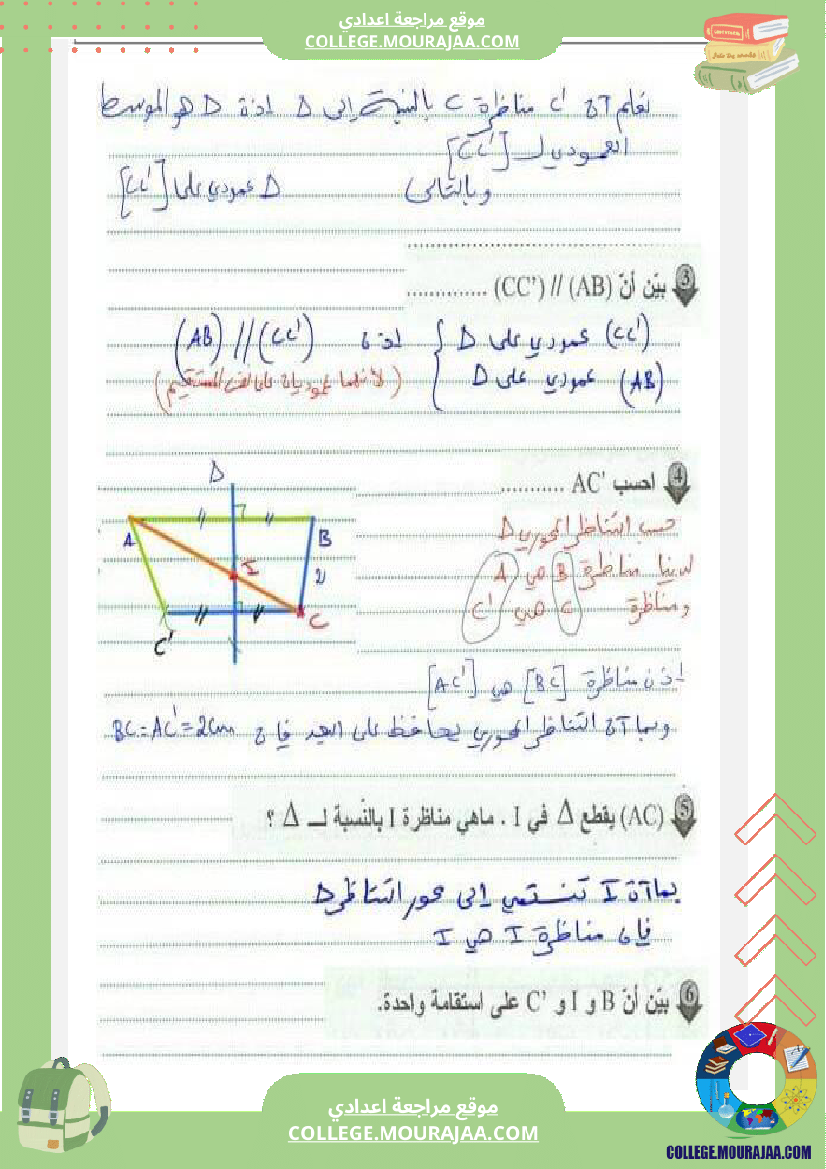 موقع مراجعة اعدادي
COLLEGE.MOURAJAA.COM
نعلم أن C' مناظرة C بالنسبة إلى D اذن D هو الموسط
العمودي لـ [CC']
وبالتالي D عمودي على [CC']
3 بيّن أنّ (AB) // (CC') ..............
(CC') عمودي على D
(AB) عمودي على D
اذن (AB) // (CC')
(لأنهما عموديان على نفس المستقيم)
4 احسب AC' ...........
حسب التناظر المحوري D
لدينا مناظرة B هي A
ومناظرة C هي C'
D
A
B
I
2
C
C'
اذن مناظرة [BC] هي [AC']
وبما أن التناظر المحوري يحافظ على البعد فإن BC=AC'=2cm
5 (AC) يقطع Δ في I . ماهي مناظرة I بالنسبة لـ Δ ؟
بما أن I تنتمي إلى محور التناظر D
فإن مناظرة I هي I
6 بيّن أنّ B و I و C' على استقامة واحدة.
موقع مراجعة اعدادي
COLLEGE.MOURAJAA.COM
COLLEGE.MOURAJAA.COM